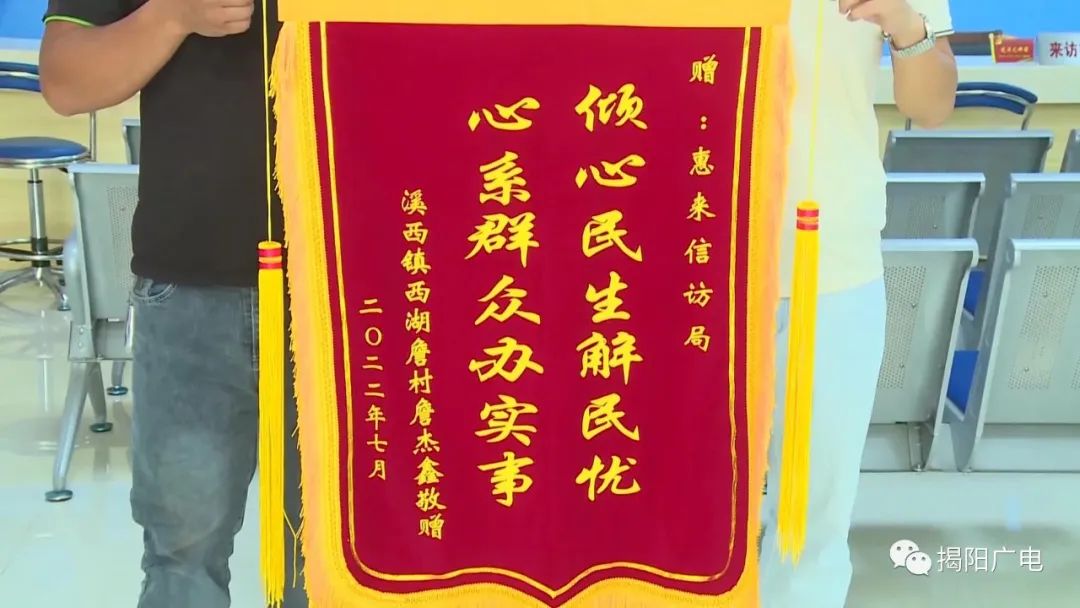 赠：惠来信访局
倾心民生解民忧
心系群众办实事
溪西镇西湖詹村詹杰鑫敬赠
二〇二二年七月
来访
揭阳广电